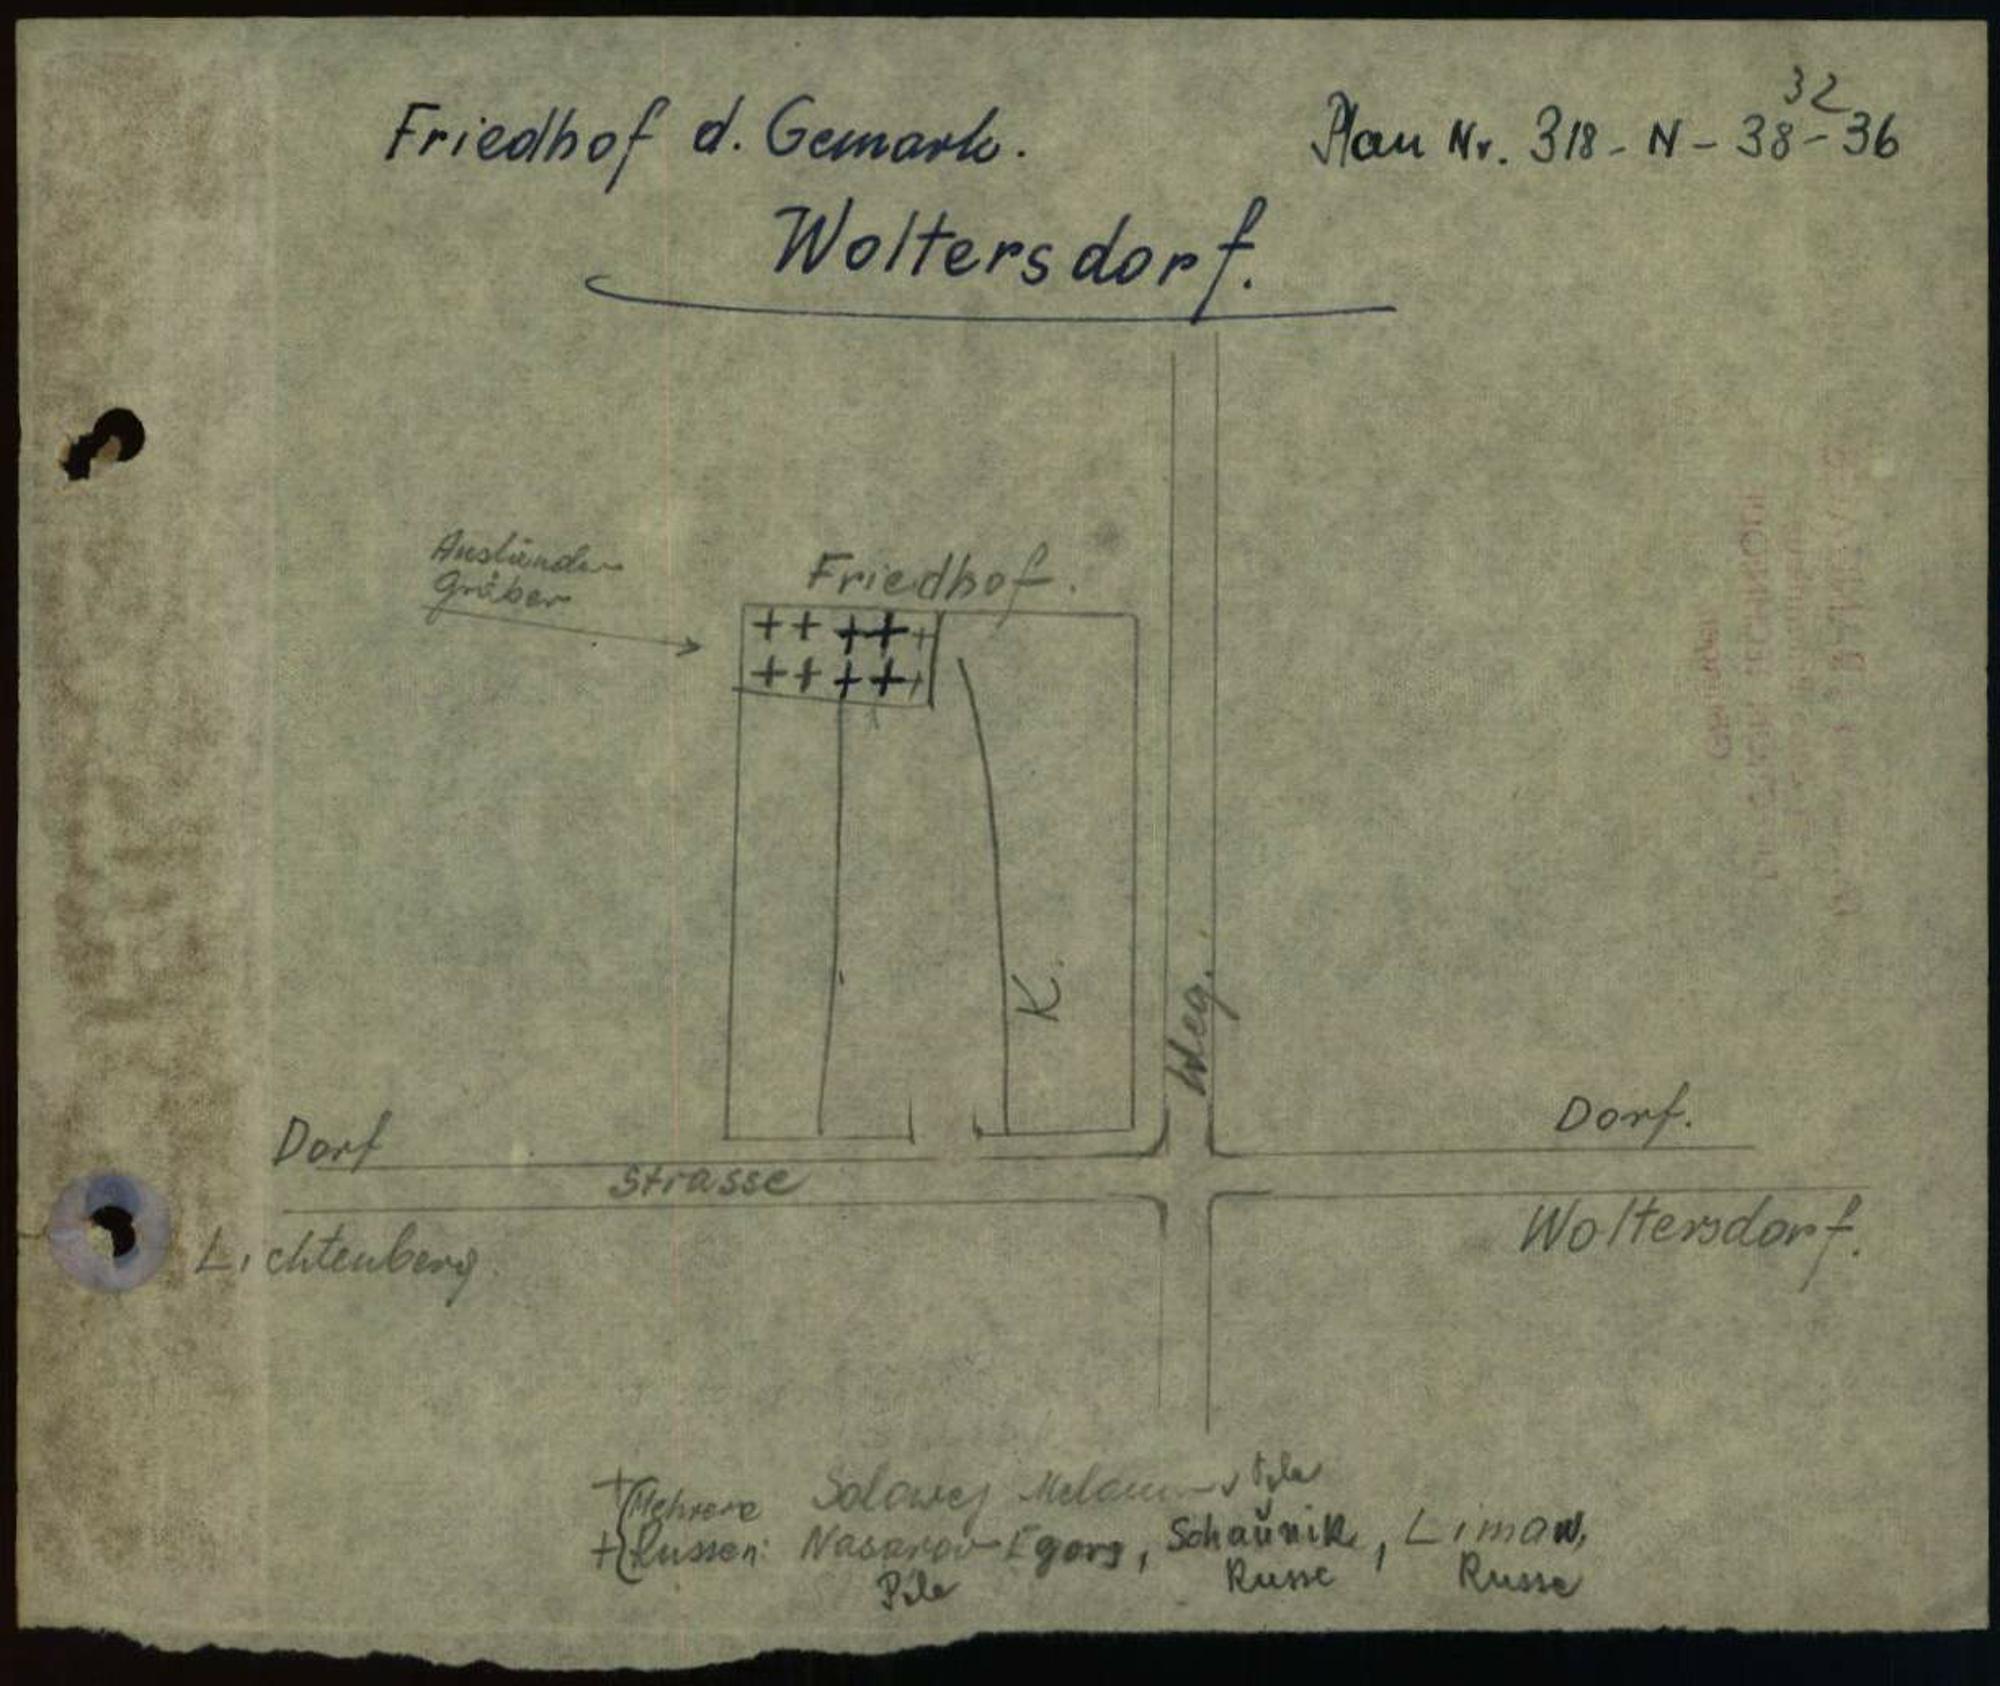 32
Friedhof d. Gemark.
Plan Nr. 318-N-38-36
Woltersdorf.
Ausländer
Gräber
Friedhof.
K.
Weg.
Dorf
Dorf.
Strasse
Lichtenberg
Woltersdorf.
Mehrere Solowej
Russen: Nasarow Egorg, Schaŭnik, Limaw,
Pole Russe Russe